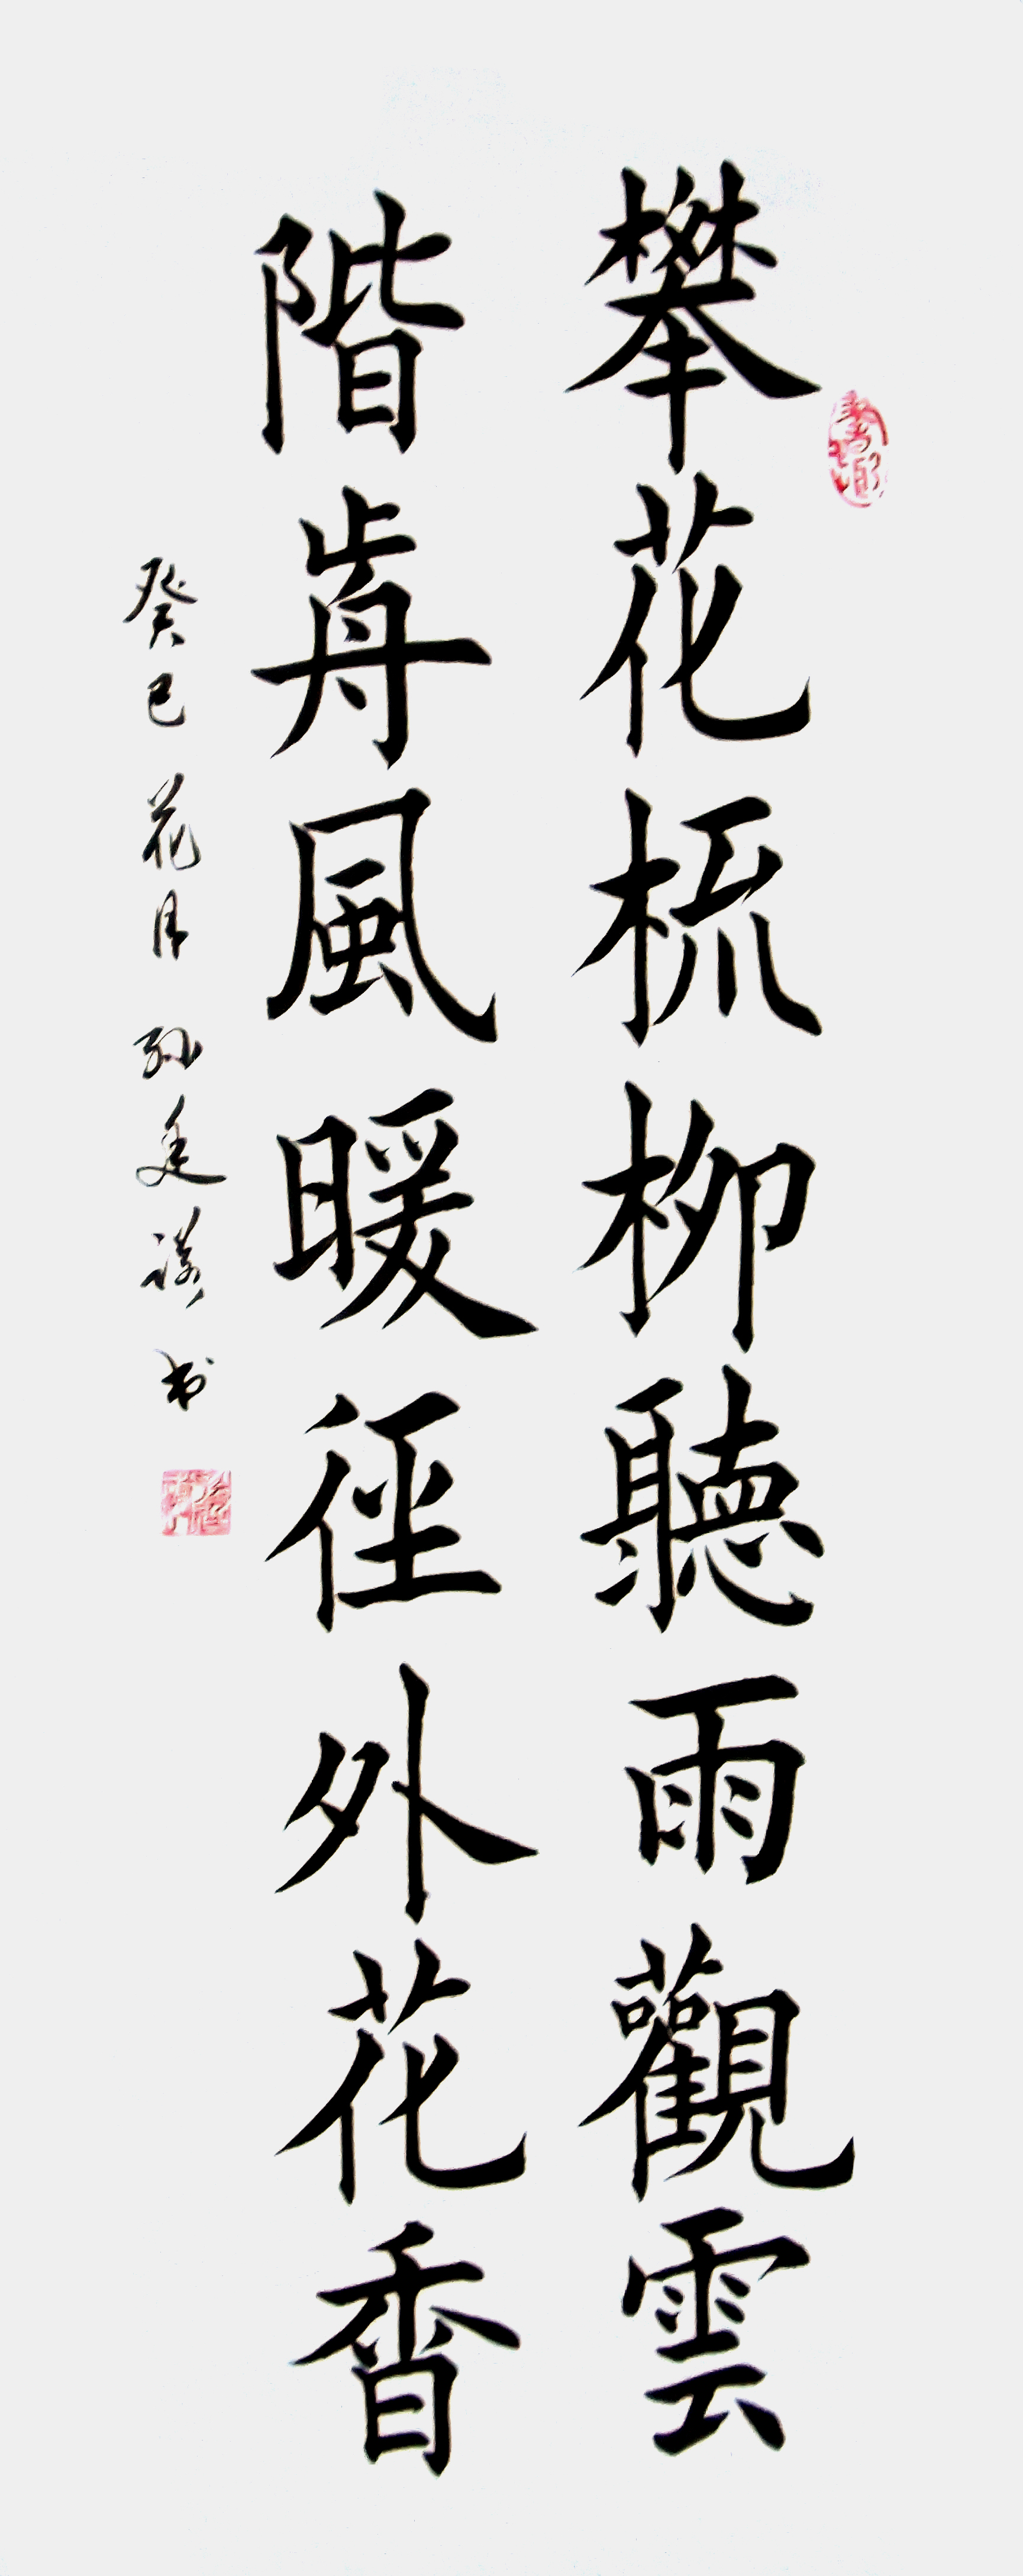 攀花梳柳聽雨觀雲
階前風暖徑外花香
癸巳花月孙廷谟书